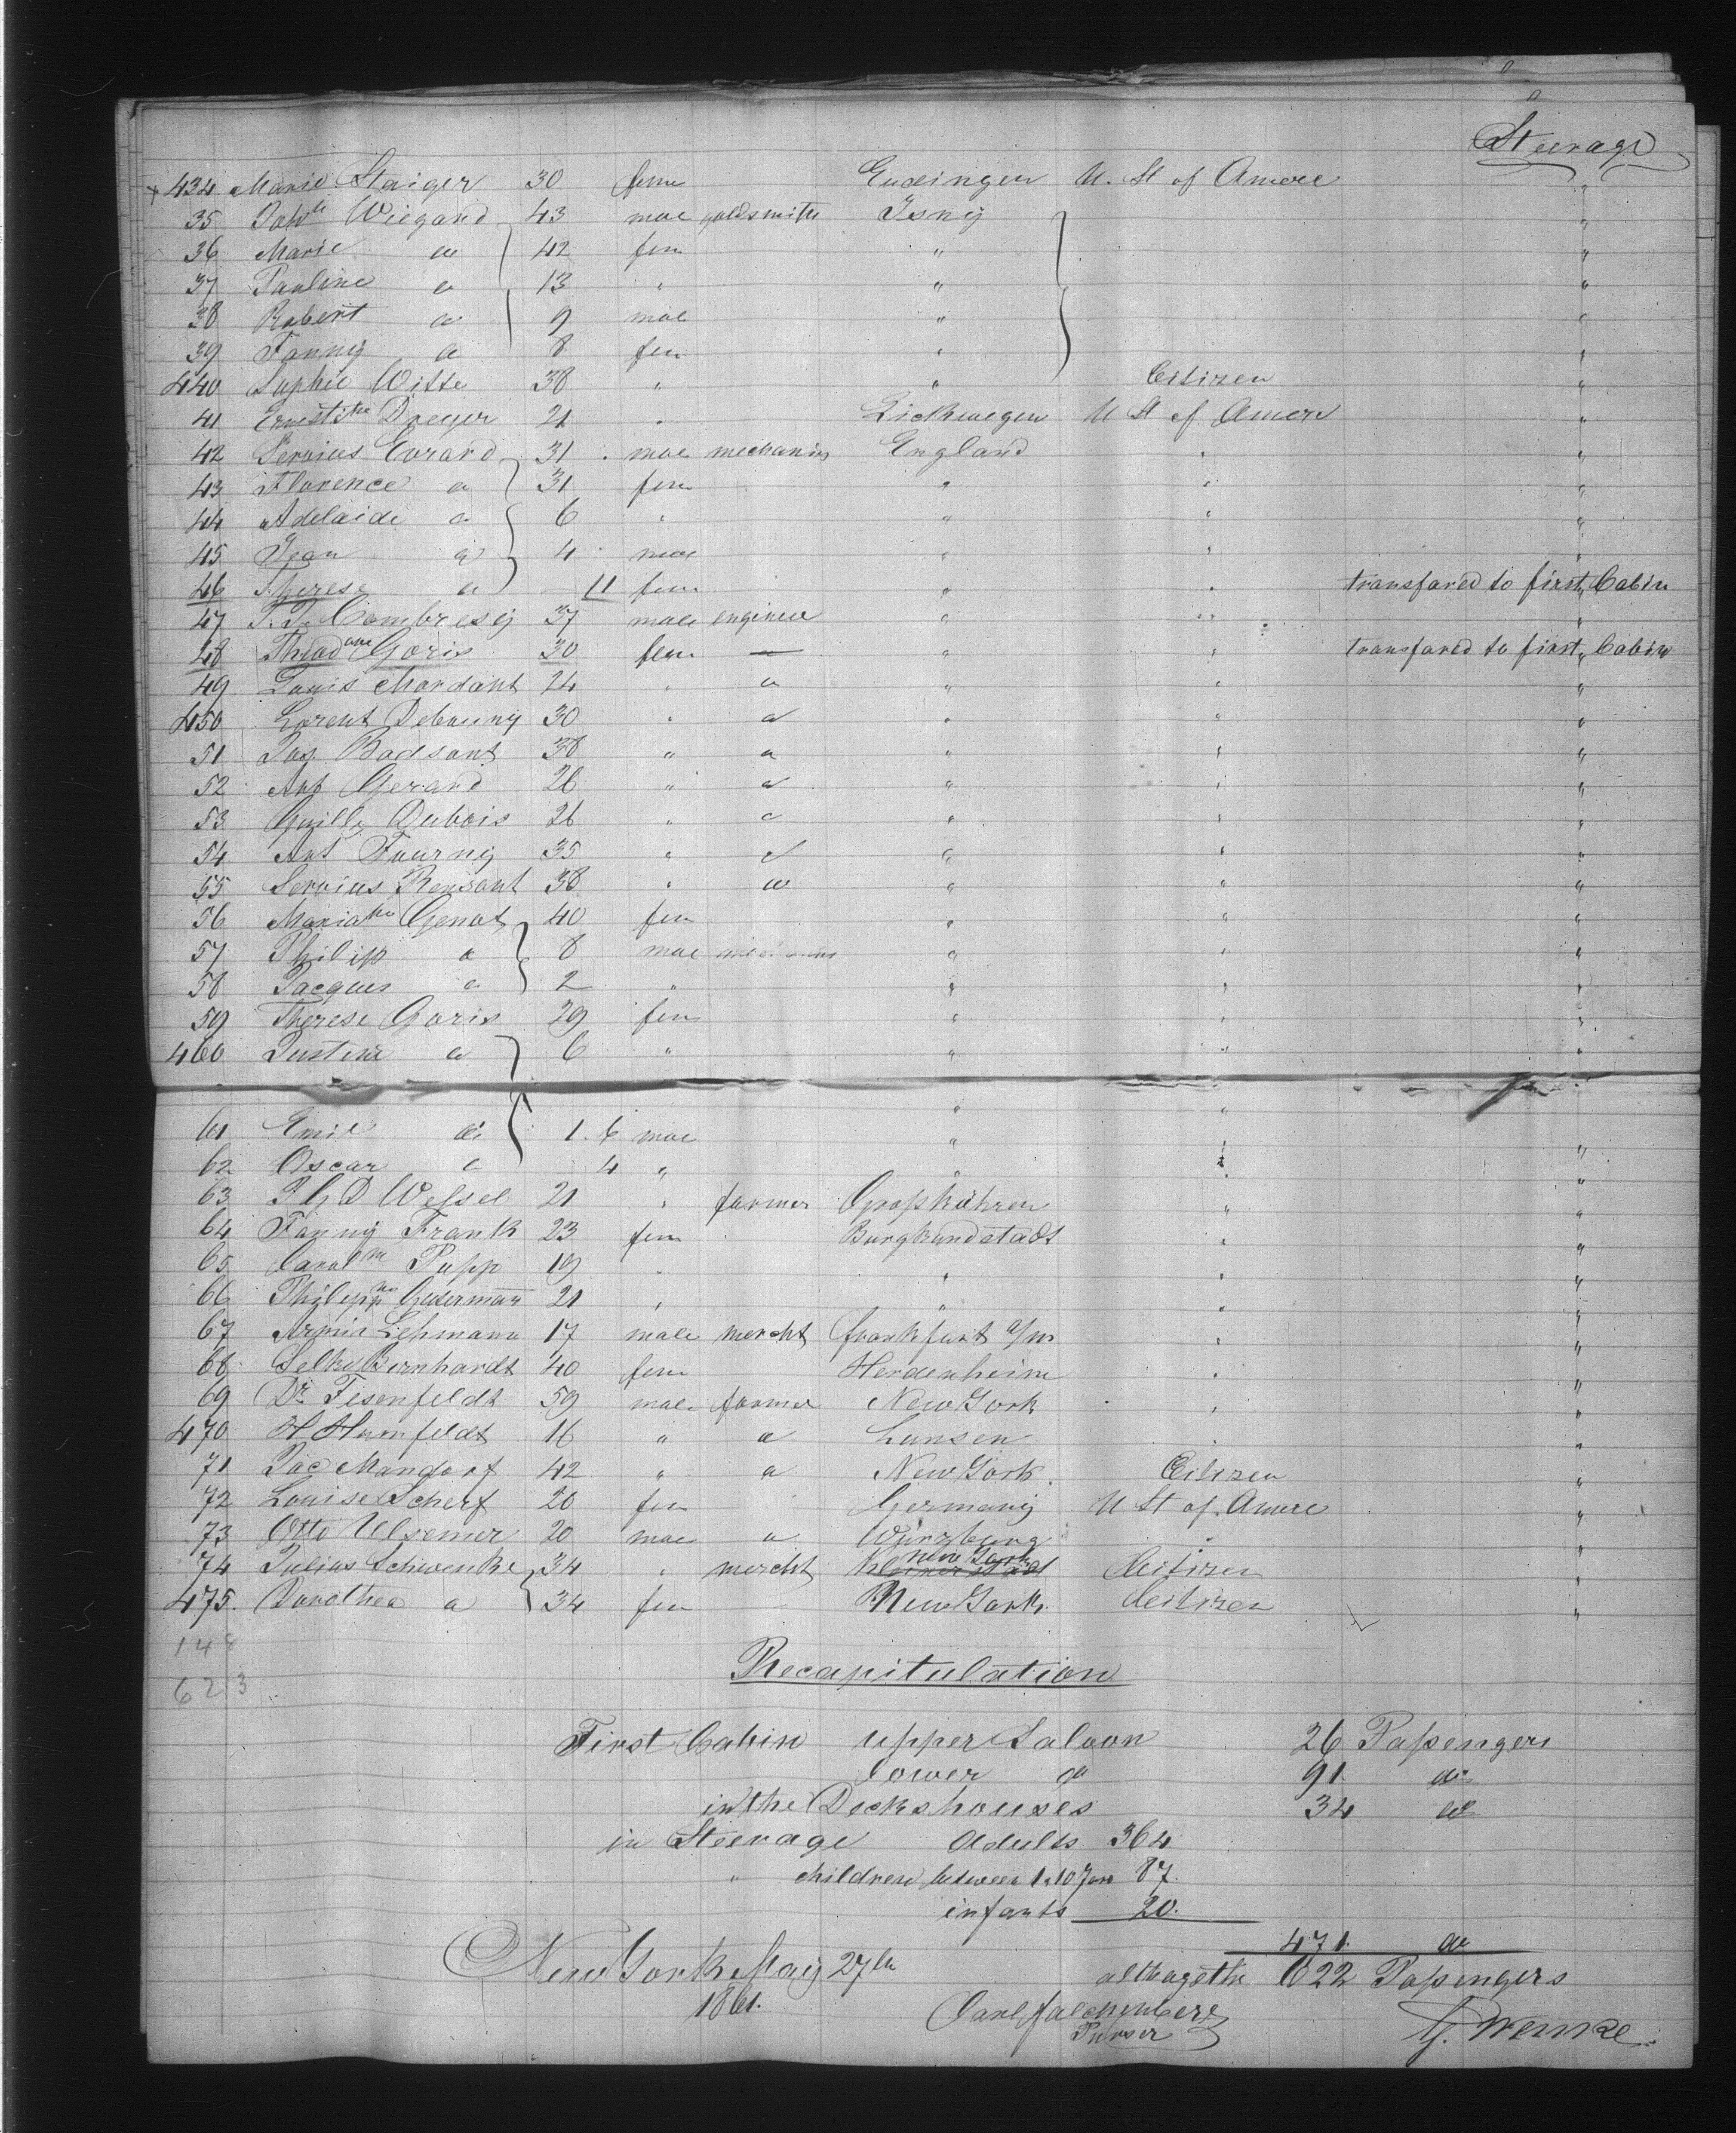 Steerage
434 Marie Staiger 30 fem Endingen U. St of Amere "
35 Joh's Wiegand 43 mae goldsmith Isny "
36 Marie a 42 fem " "
37 Pauline a 13 " " "
38 Robert a 9 mae " "
39 Fanny a 8 fem " "
440 Sophie Witte 38 " " Citizen "
41 Ernestine Dreyer 21 " Lickwegen U St of Amere "
42 Servius Evrard 31 mae mechanics England " "
43 Florence a 31 fem " " "
44 Adelaide a 6 " " " "
45 Jean a 4 mae " " "
46 Therese a 11 fem " " transfared to first Cabin
47 J. J. Combresy 37 male engineer " " "
48 Theod Goris 30 fem — " " transfared to first Cabin
49 Louis Mordant 24 " a " " "
450 Lorent Debouny 30 " a " " "
51 Jos. Badsant 38 " a " " "
52 Ant Gerard 26 " a " " "
53 Guill Dubois 26 " a " " "
54 Ant Fourny 35 " a " " "
55 Servius Rensont 38 " a " " "
56 Mariane Genot 40 fem " " "
57 Philipp a 8 mae " " "
58 Jacques a 2 " " " "
59 Therese Goris 29 fem " " "
460 Justine a 6 " " " "
61 Emil a 1. 6 mae " " "
62 Oscar a 4 " " " "
63 J G D Wessel 21 " farmer " "
64 Fanny Frank 23 fem Burgkundstadt " "
65 Carolne Pupp 19 " " " "
66 Philippne 21 " " " "
67 Armin Lehmann 17 male mercht frankfurt a/m " "
68 Bernhardt 40 fem Herdenheim " "
69 Dr. Fesenfeldt 59 male farmer New York " "
470 H Humfeldt 16 " a Lunsen " "
71 Jac Mandorf 42 " a New York Citizen "
72 Louise Scherf 20 fem Germany U St of Amere "
73 Otto Ulsemer 20 mae a Würzburg " "
74 Julius Schwenke 34 " mercht New York Citizen "
475. Dorothea a 34 fem New York. Citizen "
148
623
Recapitulation
First Cabin upper Saloon 26 Passengers
lower do 91 do
in the Deckshouses 34 do
in Steerage Adults 364
" children between 1 a 10 Jare 87.
infants 20.
471. do
New York May 27th althagethr 622 Passengers
1861. Carl Falckenberg
Purser
G. Wenke